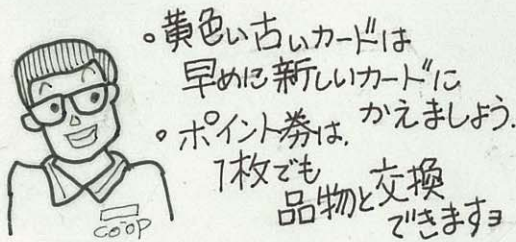 。黄色い古いカードは
早めに新しいカードに
かえましょう.
。ポイント券は、
1枚でも
品物と交換
できますョ
COOP